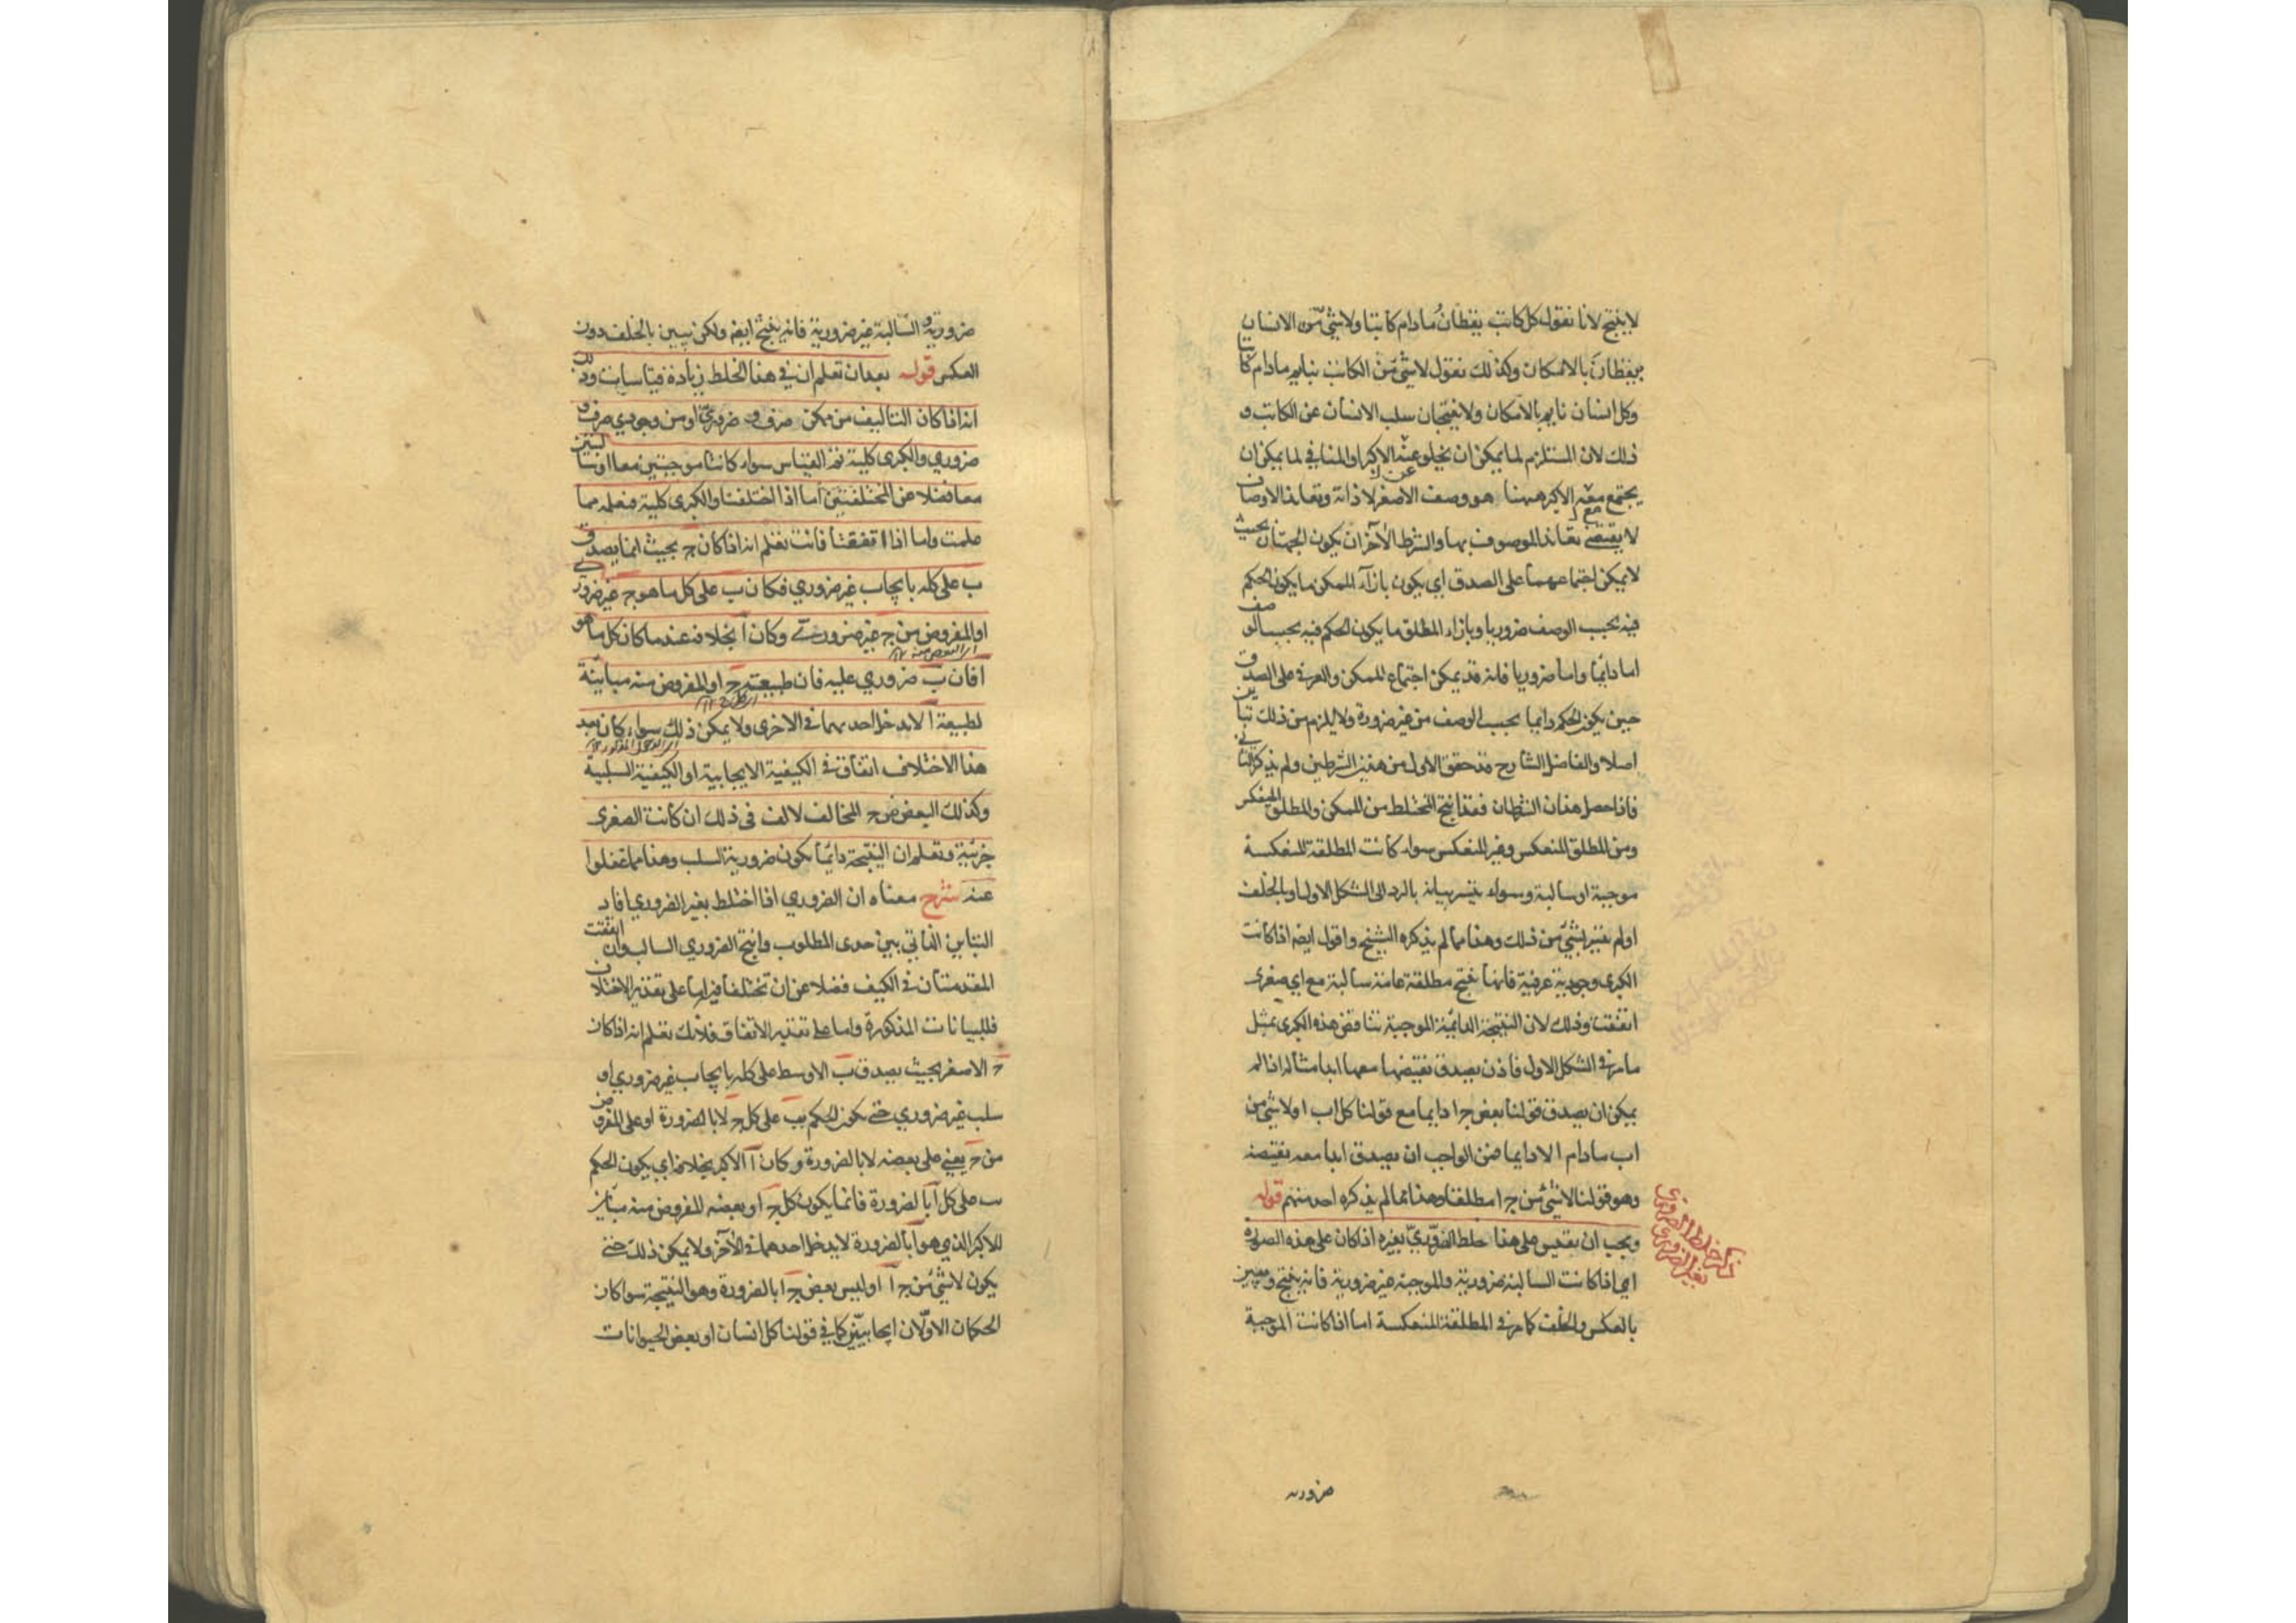 لا ينتج لانا نقول كل كاتب يقظان مادام كاتبا ولا شئ من الانسان
بيقظان بالامكان وكذلك نقول لا شئ من الكاتب بنايم مادام كاتبا
وكل انسان نايم بالامكان ولا ينتجان سلب الانسان عن الكاتب و
ذلك لان المستلزم لما يمكن ان يخلو عنه الاكبر او المنافي لما يمكن ان
يجتمع معه الاكبر ههنا هو وصف الاصغر لا ذاته وتعاند الاوصاف
لا يقتضي تعاند الموصوف بها والشرط الآخر ان يكون الجهتان بحيث
لا يمكن اجتماعهما على الصدق اي يكون بازآء الممكن ما يكون الحكم
فيه بحسب الوصف ضروريا وبازاء المطلق ما يكون الحكم فيه بحسب الوصف
اما دائما واما ضروريا فانه قد يمكن اجتماع الممكن والعرفي على الصدق
حين يكون الحكم دايما بحسب الوصف من غير ضرورة ولا يلزم من ذلك تباين
اصلا والفاضل الشارح قد حقق الاول من هذين الشرطين ولم يذكر الثاني
فاذا حصل هذان الشرطان فقد انتج المختلط من الممكن والمطلق المنعكس
ومن المطلق المنعكس وغير المنعكس سواء كانت المطلقة المنعكسة
موجبة او سالبة وسواء تيسر بيانه بالرد الى الشكل الاول او بالخلف
او لم يتيسر بشئ من ذلك وهذا مما لم يذكره الشيخ واقول ايضا اذا كانت
الكبرى وجودية عرفية فانها تنتج مطلقة عامة سالبة مع اي صغرى
اتفقت وذلك لان النتيجة الدائمة الموجبة تناقض هذه الكبرى بمثل
ما مر في الشكل الاول فاذن يصدق نقيضها معها ابدا مثاله اذا لم
يمكن ان يصدق قولنا بعض ج ا دايما مع قولنا كل اب او لا شئ من
اب مادام ا لا دايما فمن الواجب ان يصدق ابدا معه نقيضه
وهو قولنا لا شئ من ج ا مطلقا وهذا مما لم يذكره احد منهم قوله
ويجب ان تقيس على هذا خلط الضروري بغيره اذا كان على هذه الصورة
اي اذا كانت السالبة ضرورية والموجبة غير ضرورية فانه ينتج ويبين
بالعكس والخلف كما مر في المطلقة المنعكسة اما اذا كانت الموجبة
ذكر خلط الضروري
بغير الضروري
ضرورية
ضرورية والسالبة غير ضرورية فانه ينتج ايضا ولكن يبين بالخلف دون
العكس قوله بعد ان تعلم ان في هذا الخلط زيادة قياسات وذلك
انه اذا كان التاليف من ممكن صرف وضروري او من وجودي صرف و
ضروري والكبرى كلية تم القياس سواء كانتا موجبتين معا او سالبتين
معا فضلا عن المختلفتين اما اذا اختلفتا والكبرى كلية فتعلمه مما
علمت واما اذا اتفقتا فانت تعلم انه اذا كان ج بحيث انما يصدق
ب على كله بايجاب غير ضروري فكان ب على كل ما هو ج غير ضروري
او المفروض من ج غير ضروري وكان ا بخلافه عندما كان كل ما هو
ا فان ب ضروري عليه فان طبيعة ج او المفروض منه مباينة
لطبيعة ا لا يدخل احديهما في الاخرى ولا يمكن ذلك سواء كان بعد
هذا الاختلاف اتفاق في الكيفية الايجابية او الكيفية السلبية
وكذلك البعض من ج المخالف لالف في ذلك ان كانت الصغرى
جزئية وتعلم ان النتيجة دائما يكون ضرورية السلب وهذا مما غفلوا
عنه شرح معناه ان الضروري اذا اختلط بغير الضروري افاد
التباين الذاتي بين حدى المطلوب وانتج الضروري السالب وان اتفقت
المقدمتان في الكيف فضلا عن ان تختلفا فيه اما على تقدير الاختلاف
فللبيانات المذكورة واما على تقدير الاتفاق فلانك تعلم انه اذا كان
ج الاصغر بحيث يصدق ب الاوسط على كله بايجاب غير ضروري او
سلب غير ضروري حتى يكون الحكم بب على كل ج لا بالضرورة او على المفروض
من ج يعني على بعضه لا بالضرورة وكان ا الاكبر بخلافه اي يكون الحكم
بب على كل ا بالضرورة فانما يكون كل ج او بعضه المفروض منه مباين
للاكبر الذي هو ا بالضرورة لا يدخل احدهما في الآخر ولا يمكن ذلك حتى
يكون لا شئ من ج ا او ليس بعض ج ا بالضرورة وهو النتيجة سواء كان
الحكمان الاولان ايجابيين كما في قولنا كل انسان او بعض الحيوانات